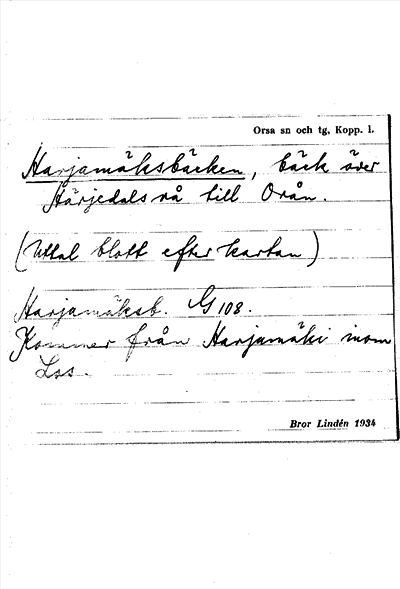 Orsa sn och tg, Kopp. l.
Harjamäksbäcken, bäck över
Härjedals rå till Orån.
(Uttal blott efter kartan)
Harjamäksb. G 108.
Kommer från Harjamäki inom
Lss.
Bror Lindén 1934